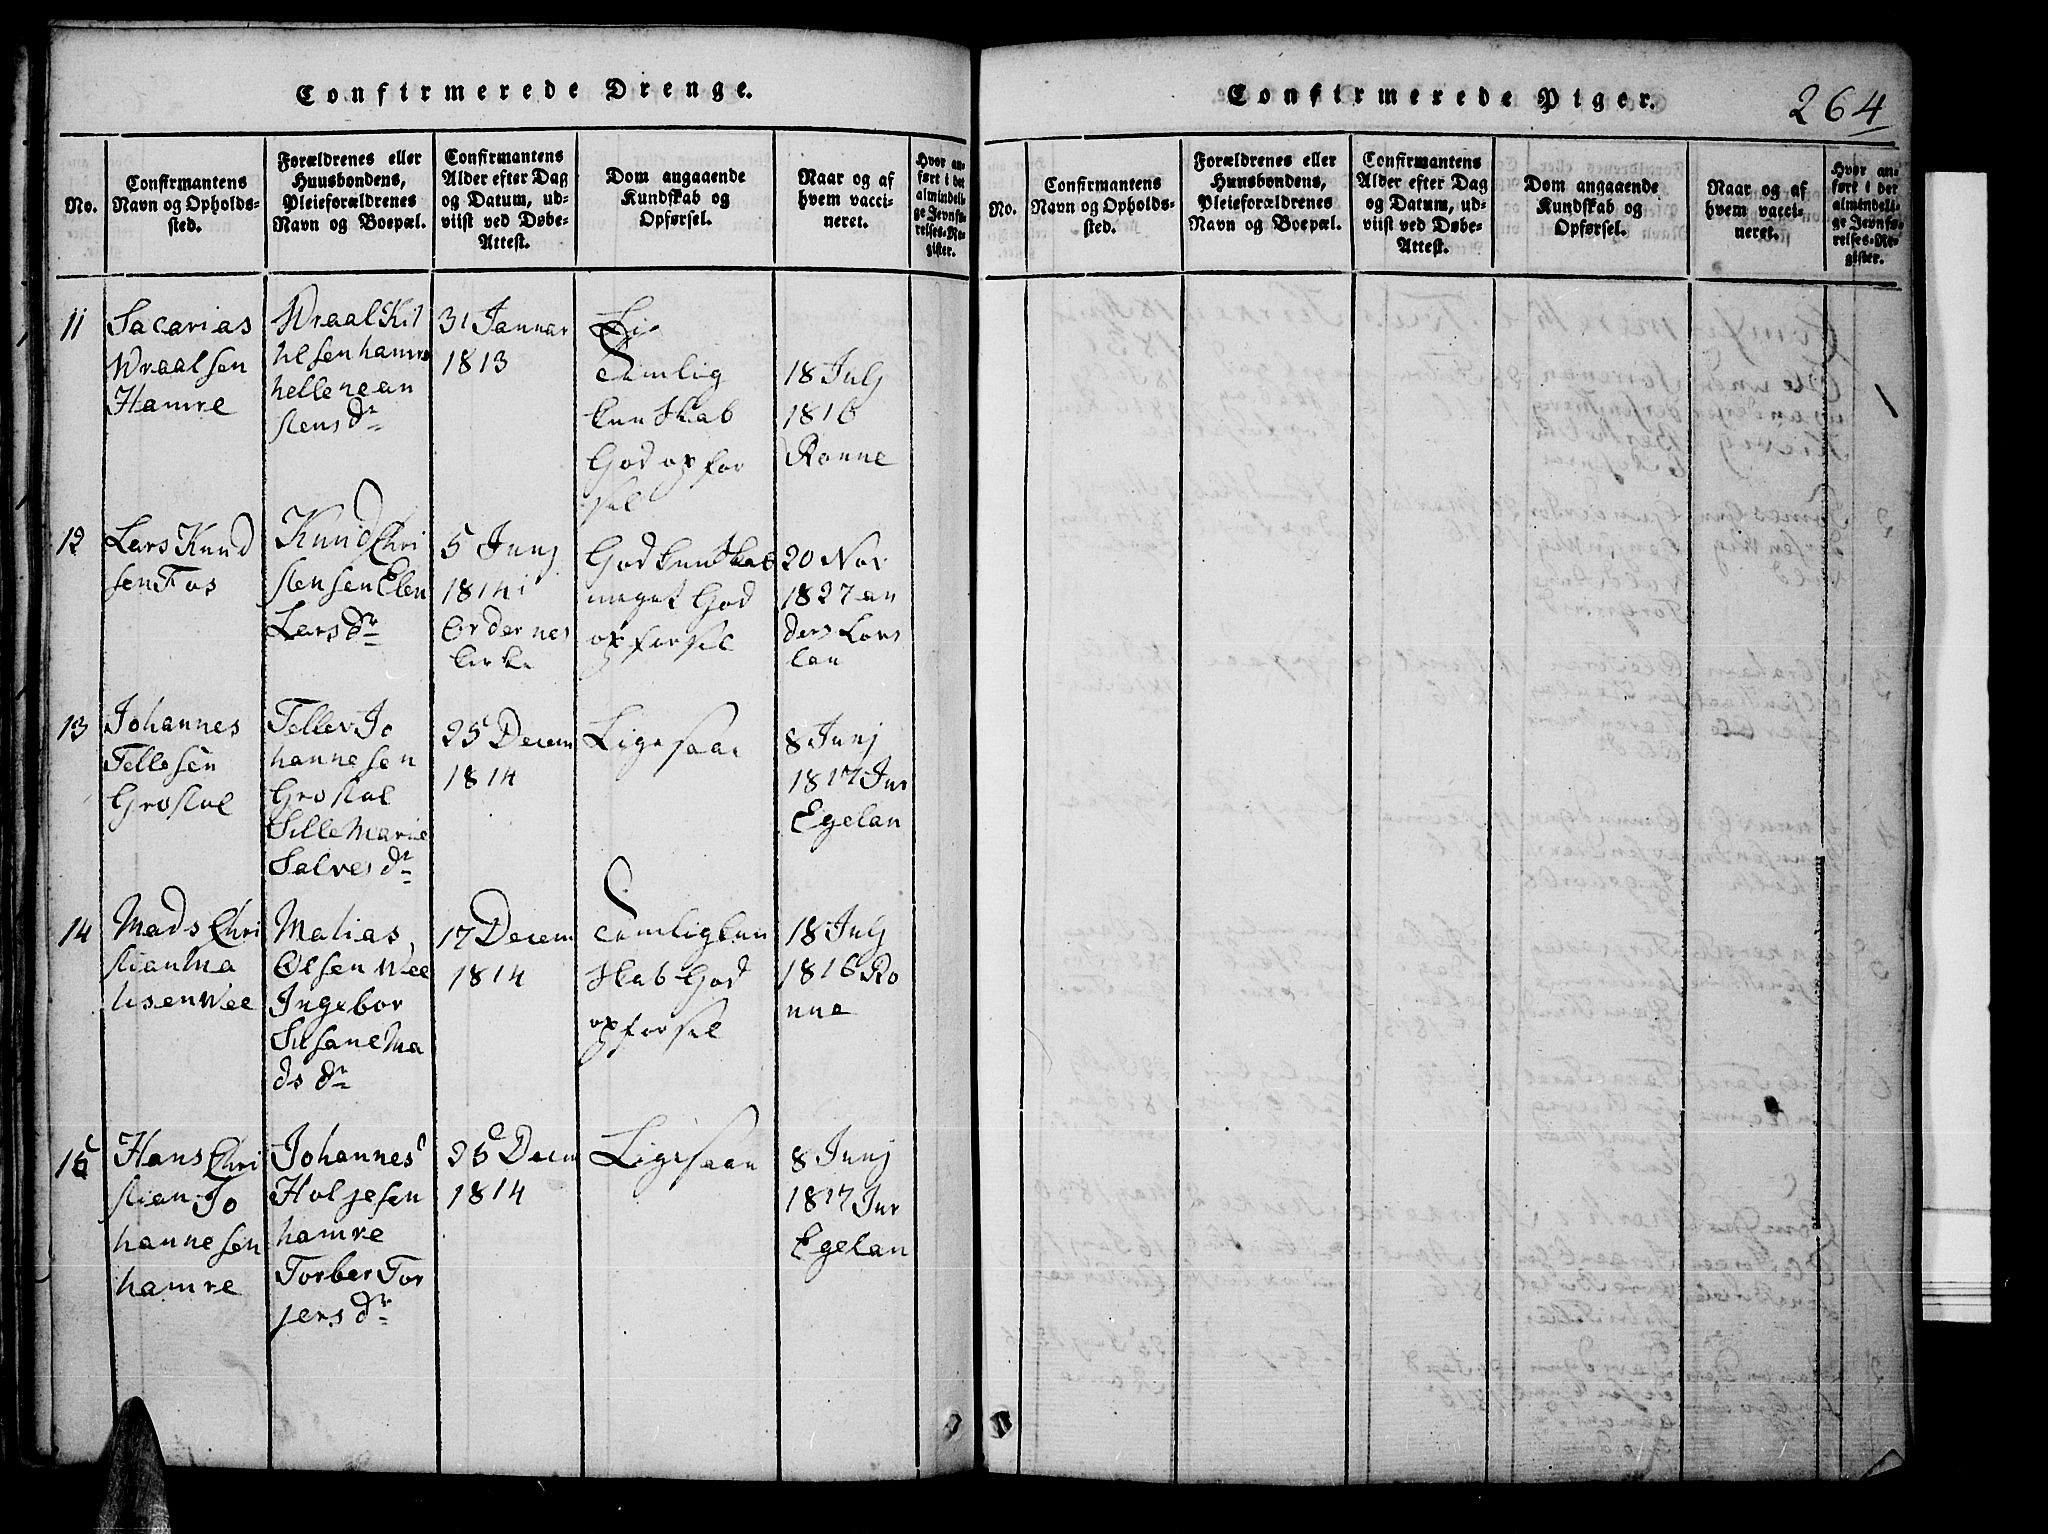 Confirmerede Drenge.
No.
Confirmantens
Navn og Opholds-
sted.
Forældrenes eller
Huusbondens,
Pleieforældrenes
Navn og Boepæl.
Confirmantens
Alder efter Dag
og Datum, ud-
viist ved Døbe-
Attest.
Dom angaaende
Kundskab og
Opførsel.
Naar og af
hvem vacci-
neret.
Hvor an-
ført i det
almindeli-
ge Jevnfø-
relses-Re-
gister.
11
Sacarias
Wraalsen
Hamre
Wraal Kit
helle
stens dr
31 Januar
1813
Temlig
kunskab
God opfor
sel
18 Julj
1816
Ronne
12
Lars Knud
sen Fos
Knud Chri
stensen Elen
Lars dr
5 Junj
1814 i
kirke
God kunskab
meget God
opforsel
20 Nov
1827 an
ders Lars
13
Johannes
Tellesen
Grostøl
Tellev Jo
hannesen
Grostøl
Sille Marie
Salves dr
25 Decem
1814
Ligesaa
8 Junj
1817 Jur
Egelan
14
Mads Chri
stian Ma
tisen Wee
Matias
Olsen Wee
Ingebor
Susane Ma
ds dr
17 Decem
1814
Temlig kun
skab God
opforsel
18 Julj
1816 Ro
nne
15
Hans Chri
stian Jo
hannesen
hamre
Johannes
Holjesen
hamre
Torber Tor
jers dr
25 Decem
1814
Ligesaa
8 Junj
1817 Jur
Egelan
Confirmerede Piger.
264
No.
Confirmantens
Navn og Opholds-
sted.
Forældrenes eller
Huusbondens,
Pleieforældrenes
Navn og Boepæl.
Confirmantens
Alder efter Dag
og Datum, ud-
viist ved Døbe-
Attest.
Dom angaaende
Kundskab og
Opførsel.
Naar og af
hvem vacci-
neret.
Hvor an-
ført i det
almindeli-
ge Jevnfø-
relses-Re-
gister.